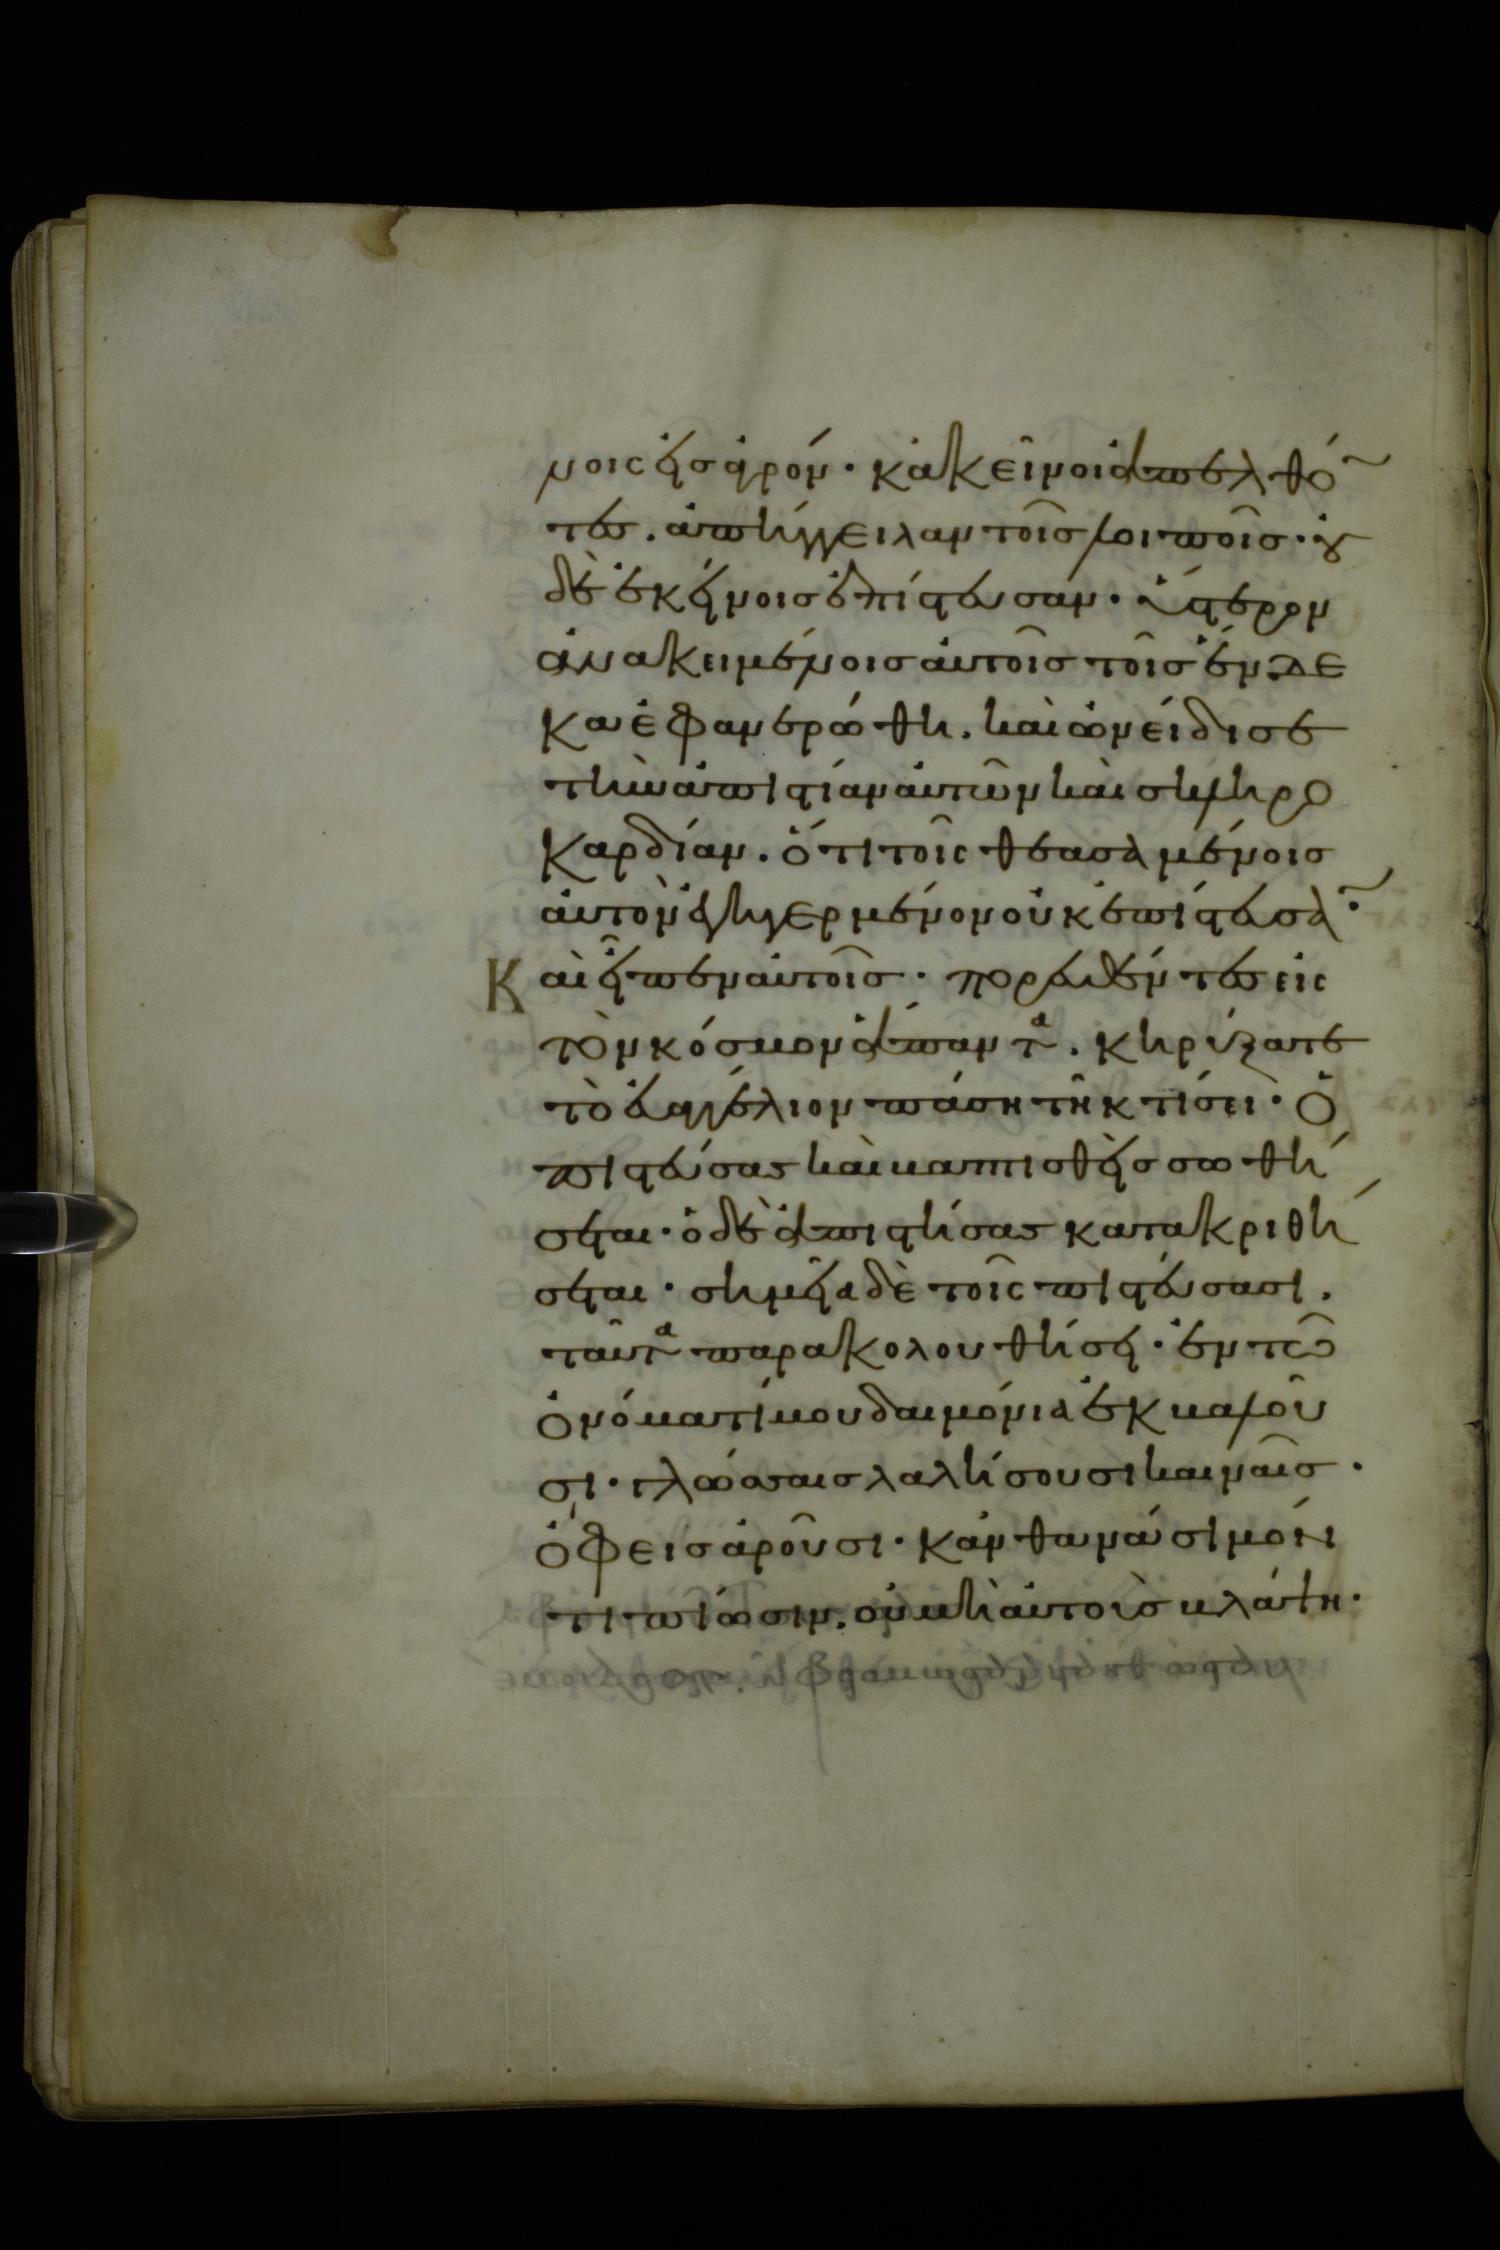 νοις εἰς ἀγρόν· κἀκεῖνοι ἀπελθό̃
τες. ἀπήγγειλαν τοῖς λοιποῖς· οὐ
δὲ ἐκείνοις ἐπίστευσαν· ὕστερον
ἀνακειμένοις αὐτοῖς τοῖς ἕνδε
κα ἐφανερώθη. καὶ ὠνείδισε
τὴν ἀπιστίαν αὐτῶν καὶ σκληρο
καρδίαν. ὅτι τοῖς θεασαμένοις
αὐτὸν ἐγηγερμένον οὐκ ἐπίστευσα̃·
Καὶ εἶπεν αὐτοῖς· πορευθέντες εἰς
τὸν κόσμον ἅπαντα. κηρύξατε
τὸ εὐαγγέλιον πάση τῆ κτίσει· Ὁ
πιστεύσας καὶ βαπτισθεὶς σωθή
σεται· ὁ δὲ ἀπιστήσας κατακριθή
σεται· σημεῖα δὲ τοῖς πιστεύσασι.
ταῦτα παρακολουθήσει· ἐν τῶ
ὀνόματί μου δαιμόνια ἐκβαλοῦ
σι· γλώσσαις λαλήσουσι καιναῖς·
ὄφεις ἀροῦσι· κἂν θανάσιμόν
τι πίωσιν. οὐ μὴ αὐτοὺς βλάψη·